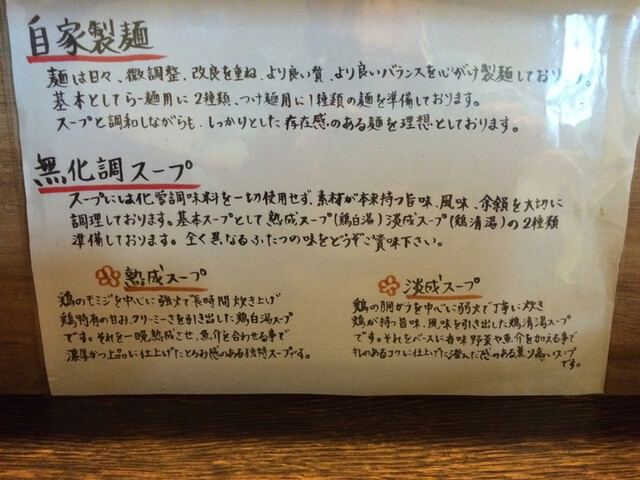 自家製麺
麺は日々、微調整、改良を重ね、より良い質、より良いバランスを心がけ製麺しております。
基本としてらー麺用に2種類、つけ麺用に1種類の麺を準備しております。
スープと調和しながらも、しっかりとした存在感のある麺を理想としております。
無化調スープ
スープには化学調味料を一切使用せず、素材が本来持つ旨味、風味、余韻を大切に
調理しております。基本スープとして熟成スープ(鶏白湯)淡成スープ(鶏清湯)の2種類
準備しております。全く異なるふたつの味をどうぞご賞味下さい。
熟成スープ
鶏のモミジを中心に強火で長時間炊き上げ
鶏特有の甘み、クリーミーさを引き出した鶏白湯スープ
です。それを一晩熟成させ、魚介を合わせる事で
濃厚かつ上品に仕上げたとろみ感のある独特スープです。
淡成スープ
鶏の胴ガラを中心に弱火で丁寧に炊き
鶏が持つ旨味、風味を引き出した鶏清湯スープ
です。それをベースに香味野菜や魚介を加える事で
キレのあるコクに仕上げた澄んだ感のある薫り高いスープ
です。